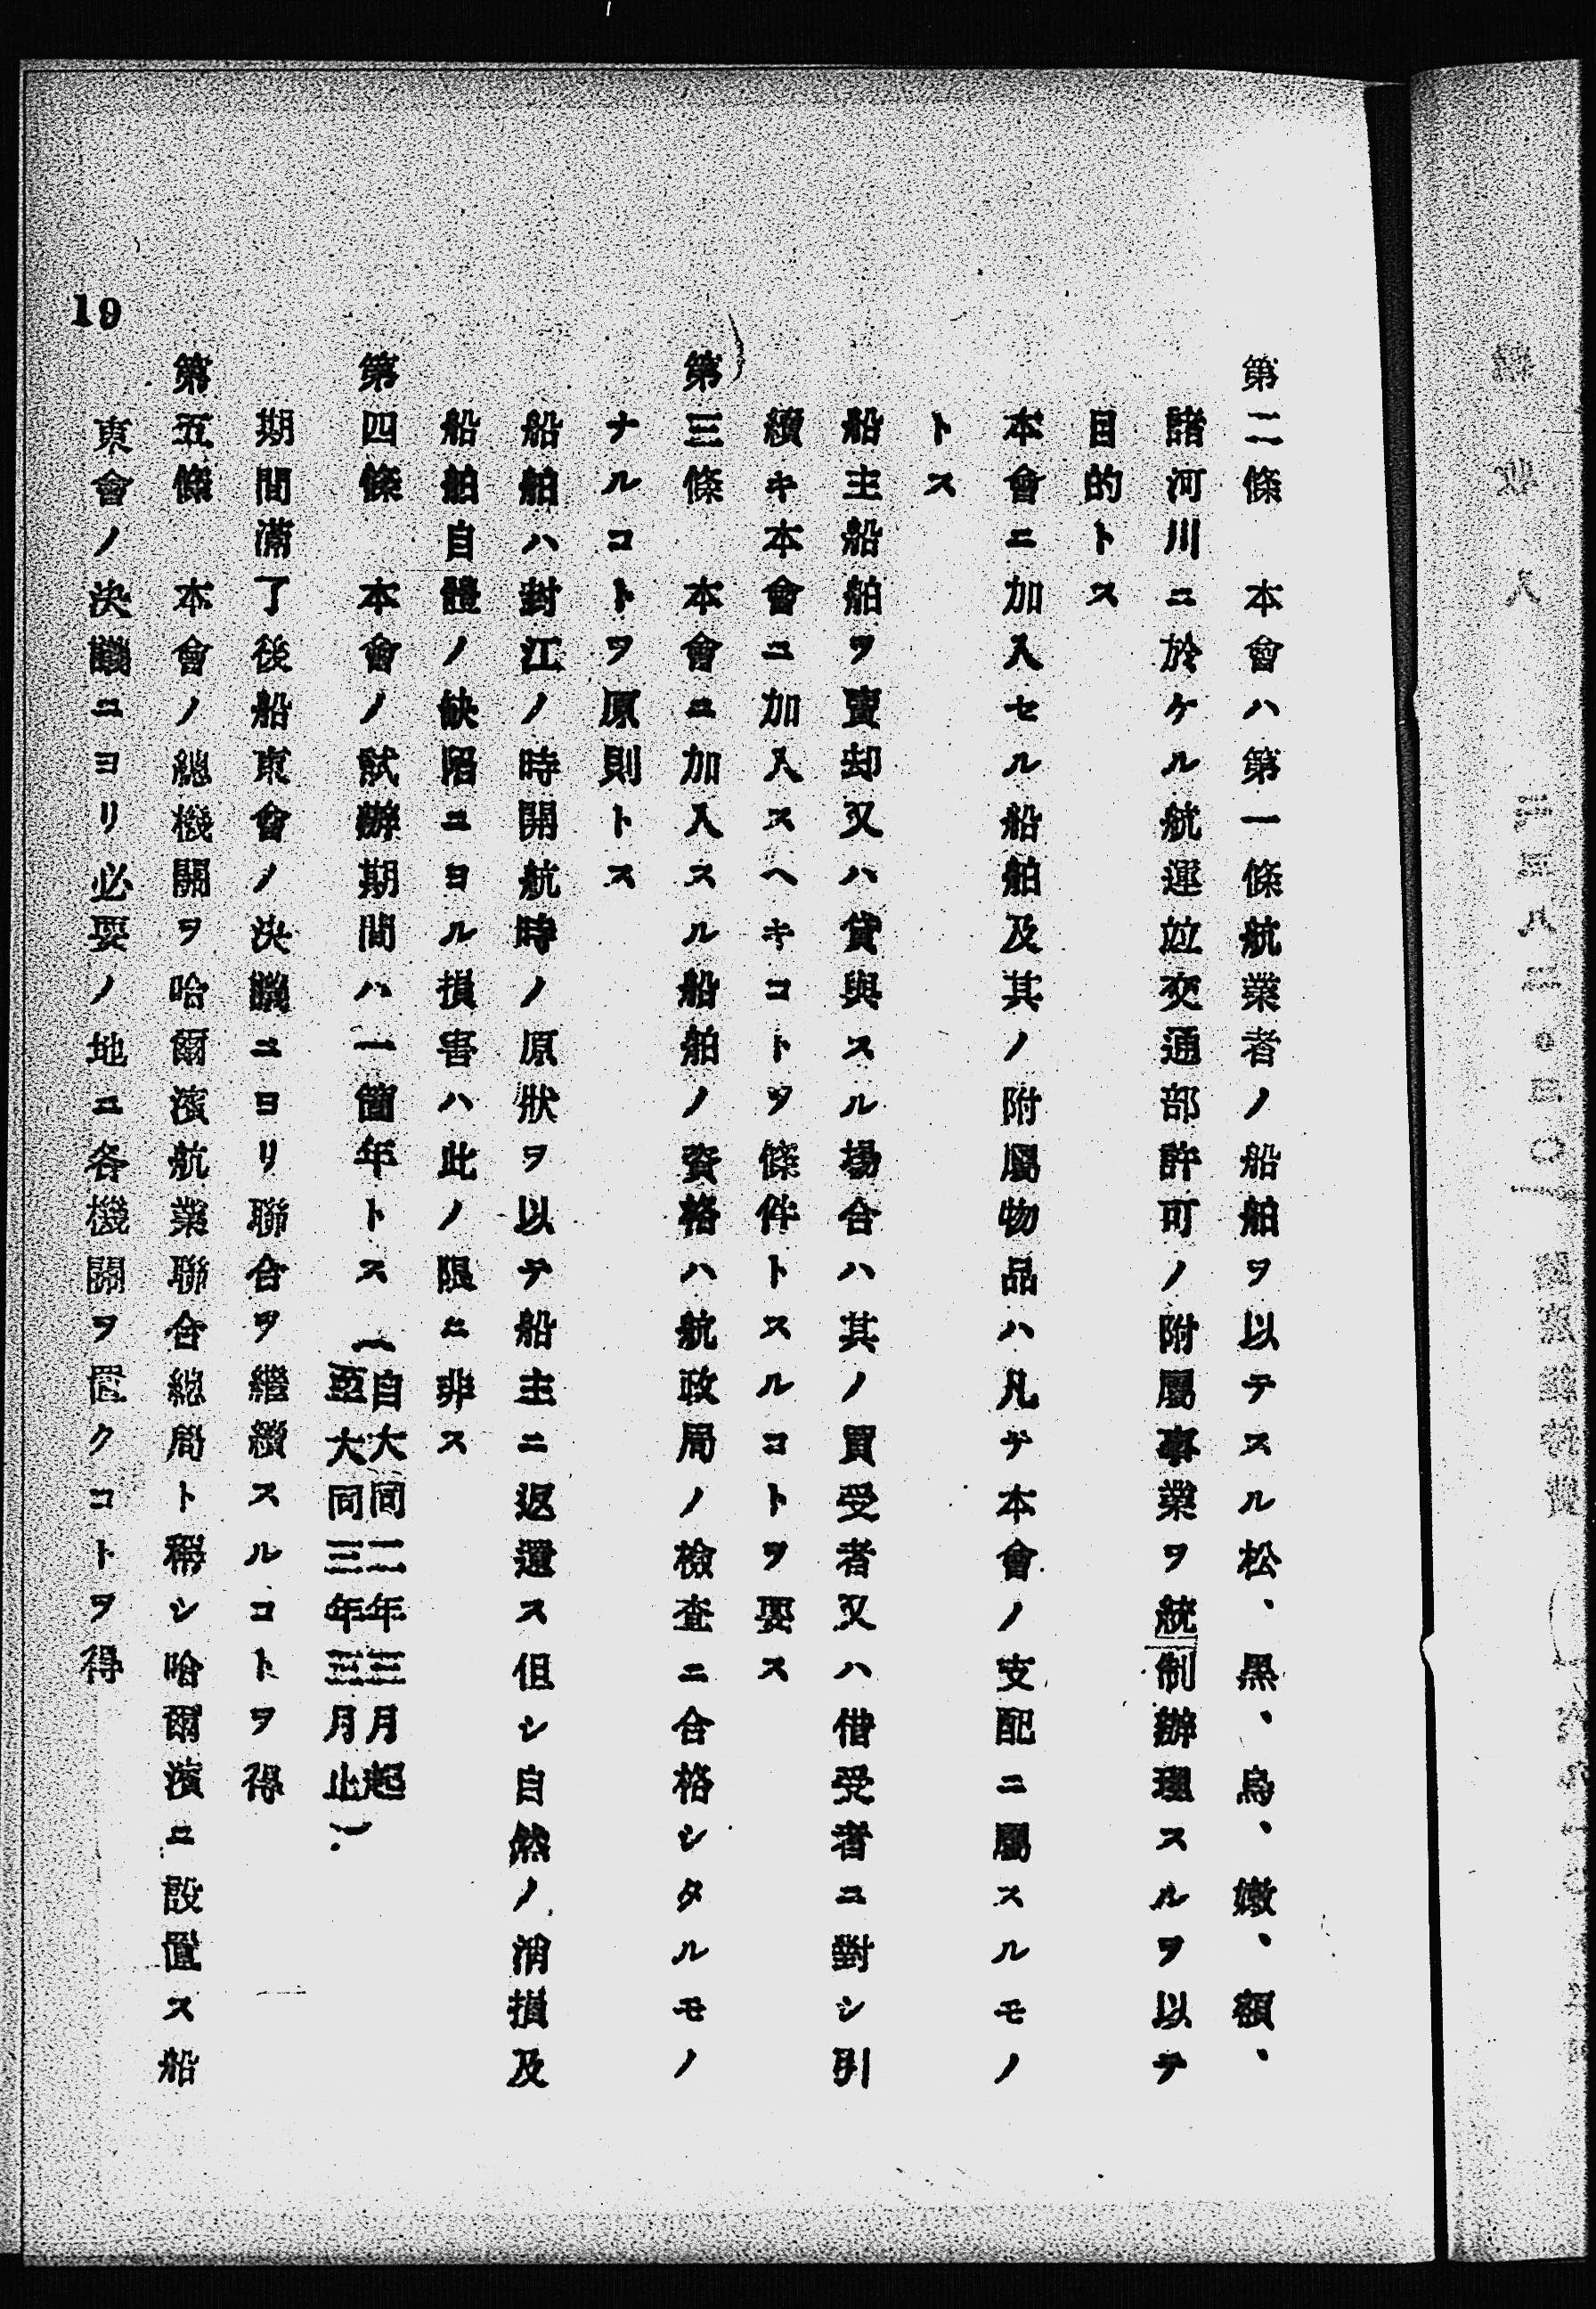 第二條　本會ハ第一條航業者ノ船舶ヲ以テスル松、黑、烏、嫩、額、
諸河川ニ於ケル航運竝交通部許可ノ附屬事業ヲ統制辦理スルヲ以テ
目的トス
本會ニ加入セル船舶及其ノ附屬物品ハ凡テ本會ノ支配ニ屬スルモノ
トス
船主船舶ヲ賣却又ハ貸與スル場合ハ其ノ買受者又ハ借受者ニ對シ引
續キ本會ニ加入スヘキコトヲ條件トスルコトヲ要ス
第三條　本會ニ加入スル船舶ノ資格ハ航政局ノ檢查ニ合格シタルモノ
ナルコトヲ原則トス
船舶ハ對江ノ時開航時ノ原狀ヲ以テ船主ニ返還ス但シ自然ノ消損及
船舶自體ノ缺陷ニヨル損害ハ此ノ限ニ非ス
第四條　本會ノ試辦期間ハ一箇年トス（自大同二年三月起
至大同三年三月止）
期間滿了後船東會ノ決議ニヨリ聯合ヲ繼續スルコトヲ得
第五條　本會ノ總機關ヲ哈爾濱航業聯合總局ト稱シ哈爾濱ニ設置ス船
東會ノ決議ニヨリ必要ノ地ニ各機關ヲ置クコトヲ得
19